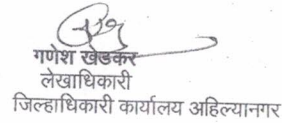 गणेश खेडकर
लेखाधिकारी
जिल्हाधिकारी कार्यालय अहिल्यानगर